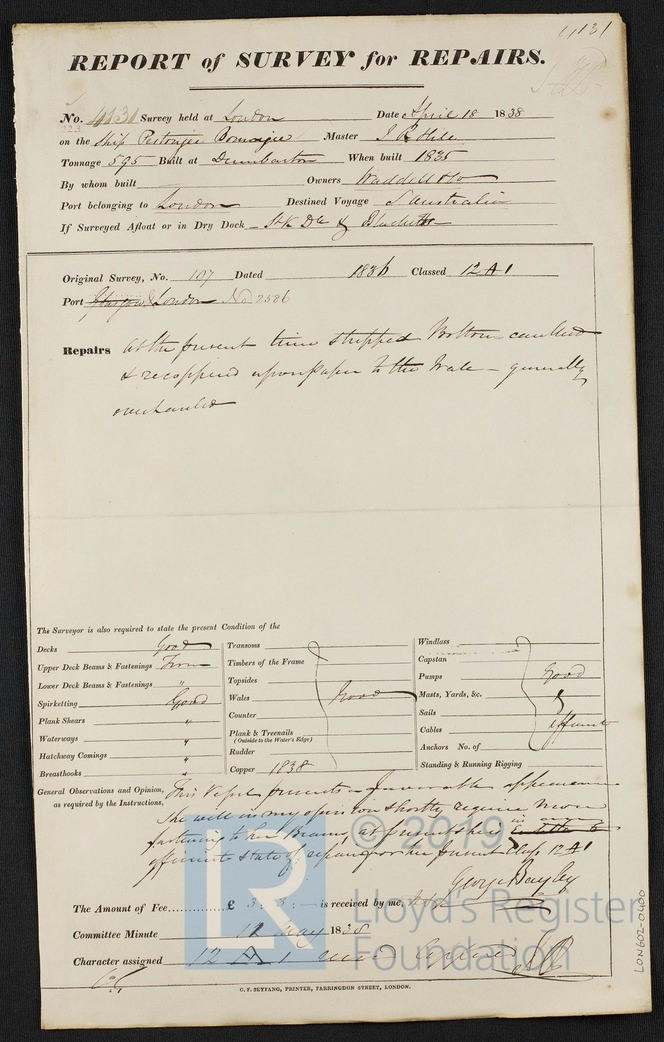 4131
REPORT of SURVEY for REPAIRS.
No. 4131 Survey held at London Date April 18 1838
223
on the Ship Pestonjee Bomanjee Master J R Hele
Tonnage 595 Built at Dumbarton When built 1835
By whom built Owners Waddell & Co
Port belonging to London Destined Voyage S Australia
If Surveyed Afloat or in Dry Dock St K Dk & Blackwall
Original Survey, No. 107 Dated 1836 Classed 12 A 1
Port Glasgow & London No 2586
Repairs At the present time stripped Bottom caulked
& recoppered upon paper to the Wale - generally
overhauled
The Surveyor is also required to state the present Condition of the
Decks Good
Upper Deck Beams & Fastenings Firm
Lower Deck Beams & Fastenings "
Spirketting Good
Plank Shears "
Waterways "
Hatchway Comings "
Breasthooks "
Transoms
Timbers of the Frame
Topsides
Wales Good
Counter
Plank & Treenails
(Outside to the Water's Edge)
Rudder
Copper 1838
Windlass
Capstan
Pumps Good
Masts, Yards, &c. &
Sails
Cables efficient
Anchors No. of
Standing & Running Rigging
General Observations and Opinion, This Vessel presents a favorable appearance
as required by the Instructions, She will in my opinion shortly require more
fastening to her Beams, at present she is in an
efficient state of repair for her present Class 12 A 1
George Bayley
The Amount of Fee........... £ 3 : 3 : is received by me,
Committee Minute 11 May 1838
Character assigned 12 A 1
C. F. SEYFANG, PRINTER, FARRINGDON STREET, LONDON.
LON602-0400
LR
© 2019
Lloyd's Register
Foundation